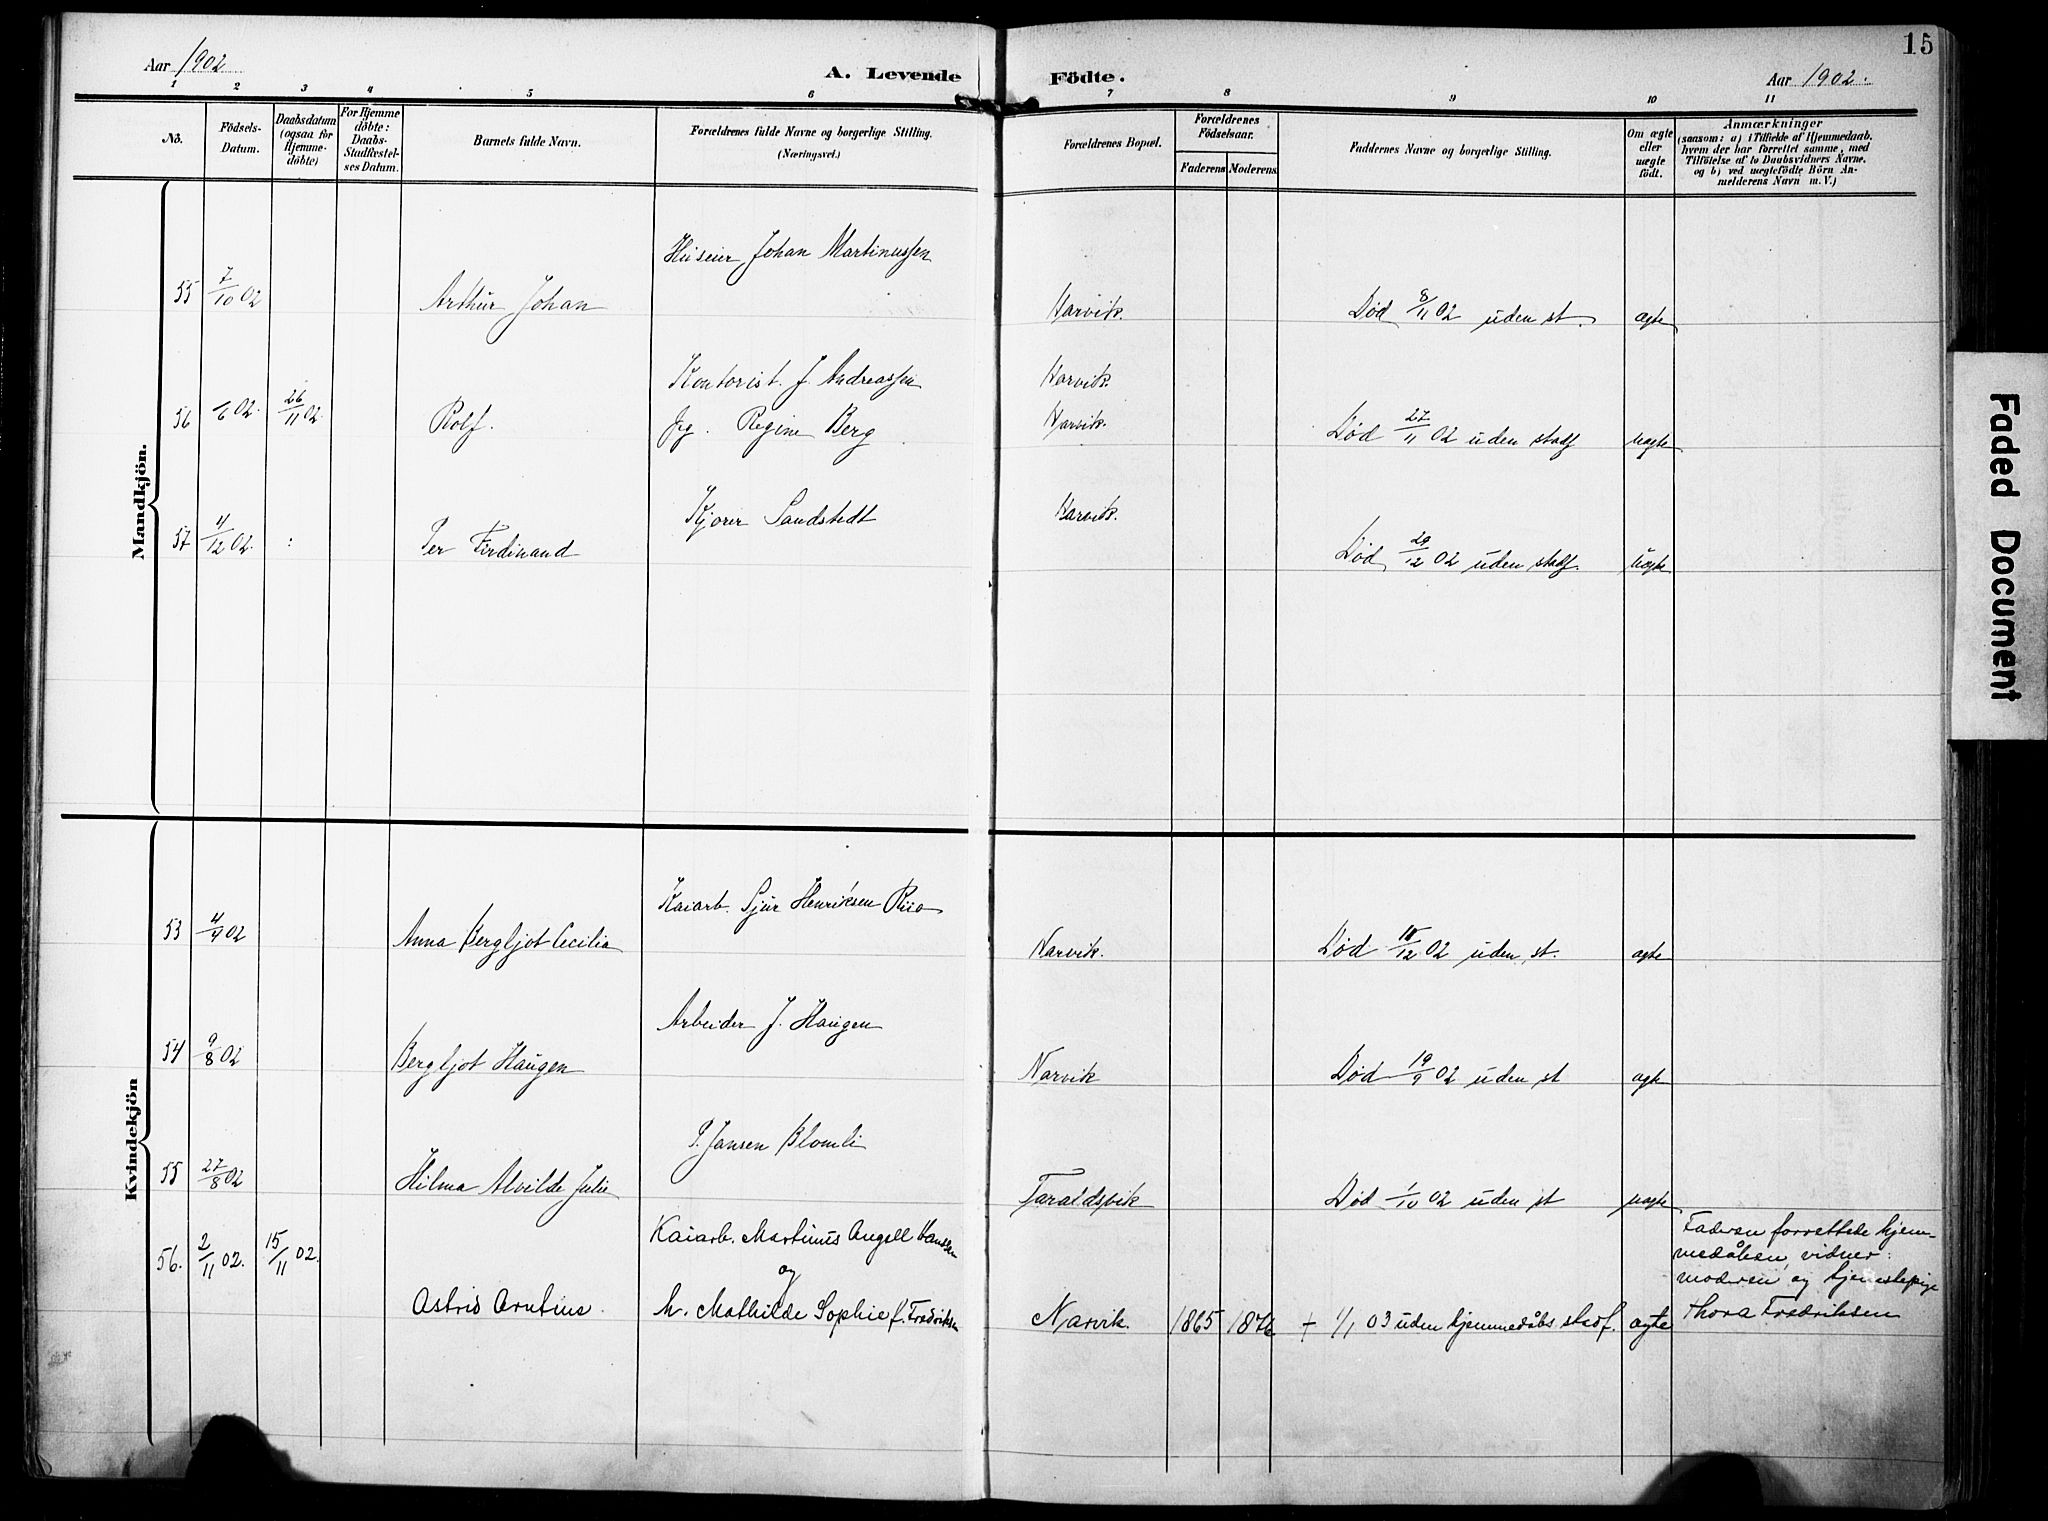 15
Aar 1902
A. Levende Födte.
Aar 1902.
1 2 3 4 5 6 7 8 9 10 11
No.
Födsels-
Datum.
Daabsdatum
(ogsaa för
Hjemme-
döbte)
For Hjemme
döbte:
Daabs-
Stadfæstel-
ses Datum.
Barnets fulde Navn.
Forældrenes fulde Navne og borgerlige Stilling.
(Næringsvei.)
Forældrenes Bopæl.
Forældrenes
Födselsaar.
Faderens Moderens
Faddernes Navne og borgerlige Stilling.
Om ægte
eller
uægte
födt.
Anmærkninger
(saasom: a) i Tilfælde af Hjemmedaab,
hvem der har forrettet samme, med
Tilföielse af to Daabsvidners Navne,
og b) ved uægtefödte Börn An-
melderens Navn m. V.)
Mandkjön.
Huseier Johan Martinussen
55 7/10 02 Arthur Johan Narvik. Død 8/11 02 uden st. ægte
Kontorist. J. Andreassen Narvik.
56 /6 02. 26/11 02 Rolf. Pg. Regine Berg Narvik. Død 27/11 02 uden stadf uægte
Sandstedt Narvik.
57 4/12 02. Per Ferdinand Død 29/12 02 uden stadf. uægte
Kvindekjön
Kaiarb. Sjur Henriksen Riio
53 4/9 02 Anna Bergljot Cecilia Narvik. Død /12 02 uden st. ægte
Arbeider J. Haugen
54 9/8 02 Bergljot Haugen Narvik Død 19/9 02 uden st ægte
P. Jansen Blomli
55 27/8 02 Hilma Alvilde Julie Taraldsvik Død 1/10 02 uden st uægte
Kaiarb. Martinus Angell Hanssen
og
56. 2/11 02. 15/11 02. Astrid Arntine. h. Mathilde Sophie f. Fredriksen Narvik. 1865 1876 + 1/1 03 uden hjemmedåbs stadf. ægte
Faderen forrettede hjem-
medåben, vidner:
moderen og tjenestepige
Thora Fredriksen
Faded Document